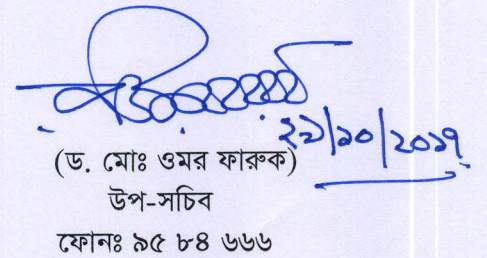 ২৯/১০/২০১৭
(ড. মোঃ ওমর ফারুক)
উপ-সচিব
ফোনঃ ৯৫ ৮৪ ৬৬৬